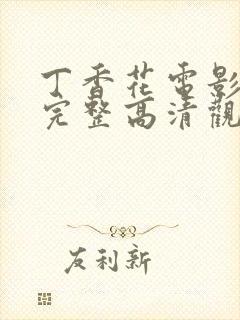 丁香花電影
完整高清觀
友利新